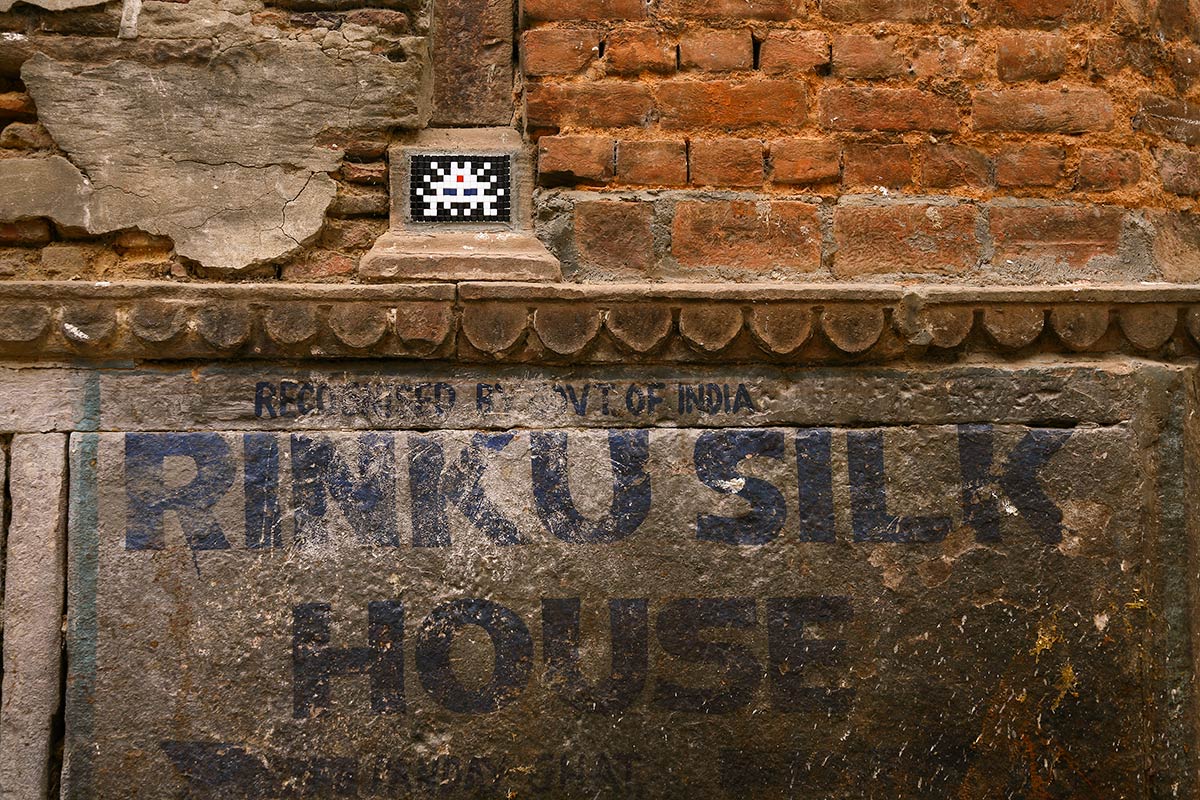 RECOGNISED BY GOVT OF INDIA
RINKU SILK
HOUSE